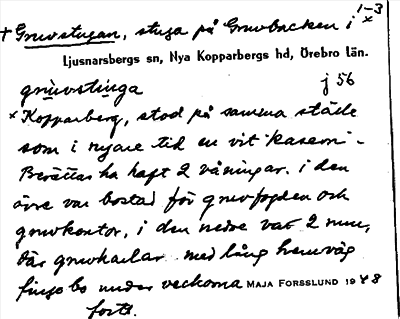 + Gruvstugan, stuga på Gruvbacken i 1-3
x
Ljusnarsbergs sn, Nya Kopparbergs hd, Örebro län.
gruvstuga j 56
x Kopparberg, stod på samma ställe
som i nyare tid en vit "kasern".
Berättas ha haft 2 våningar. i den
övre var bostad för gruvfogden och
gruvkontor, i den nedre var 2 rum,
där gruvkarlar med lång hemväg
fingo bo under veckorna MAJA FORSSLUND 1948
forts.